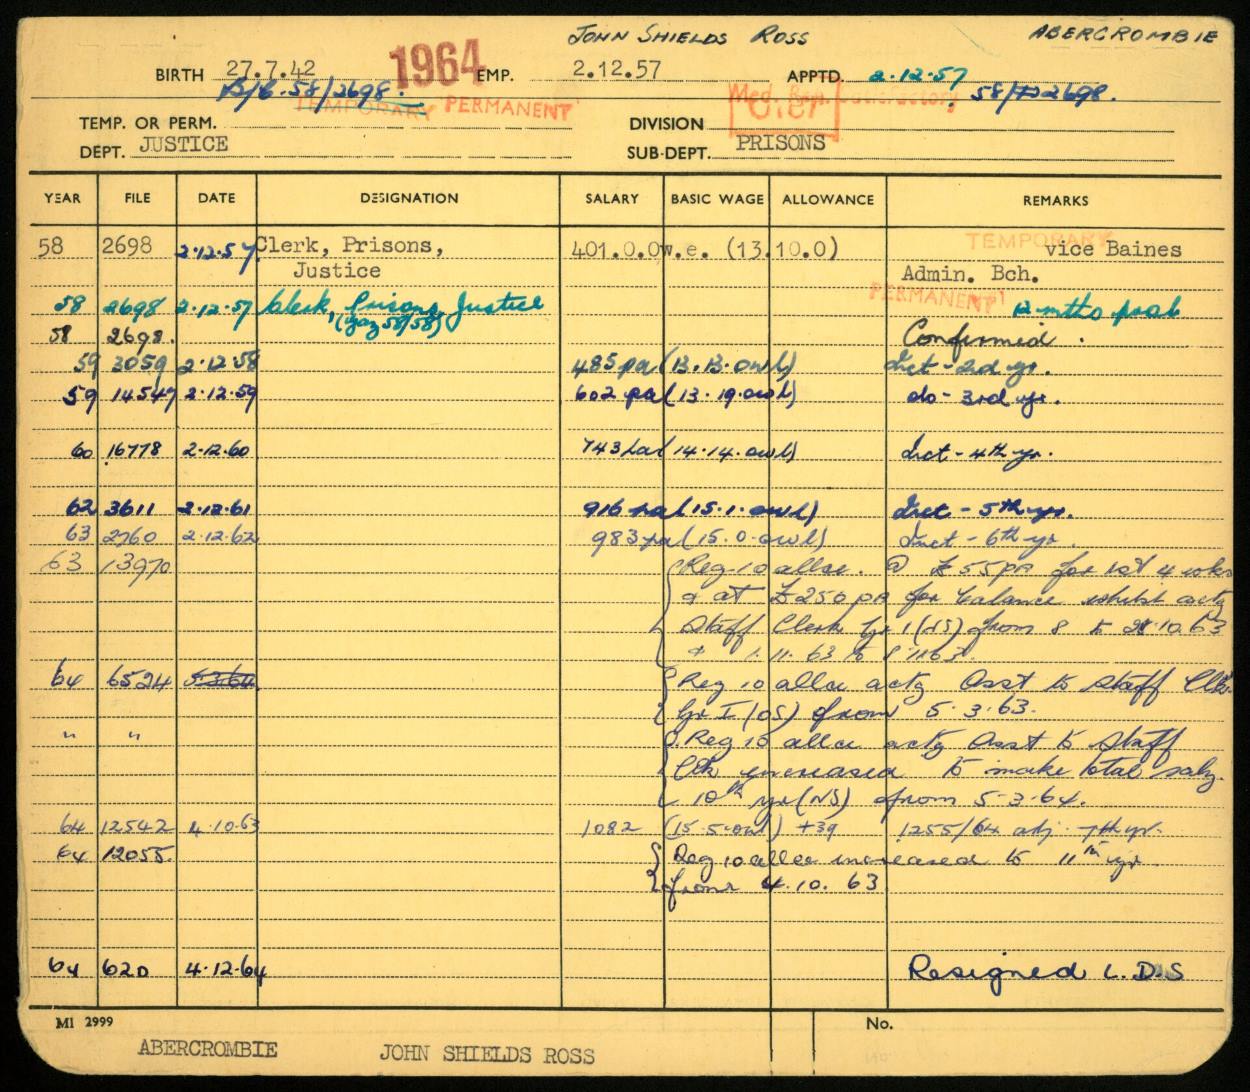 JOHN SHIELDS ROSS ABERCROMBIE
BIRTH 27.7.42 1964 EMP. 2.12.57 APPTD. 2.12.57
B/C. 58/2698. 58/2698.
TEMPORARY PERMANENT Med. Rep. Satisfactory
TEMP. OR PERM. DIVISION
DEPT. JUSTICE SUB-DEPT. PRISONS
YEAR FILE DATE DESIGNATION SALARY BASIC WAGE ALLOWANCE REMARKS
58 2698 2.12.57 Clerk, Prisons, 401.0.0 w.e. (13.10.0) TEMPORARY vice Baines
Justice Admin. Bch.
PERMANENT
58 2698 2.12.57 Clerk, Prisons, Justice 12 mths prob
58 2698. (Gaz 58/58) Confirmed.
59 3059 2.12.58 485 pa (13.13.0wl) Inct - 2nd yr.
59 14547 2.12.59 602 pa (13.19.0wl) do - 3rd yr.
60 16778 2.12.60 743 pa (14.14.0wl) Inct - 4th yr.
62 3611 2.12.61 916 pa (15.1.0wl) Inct - 5th yr.
63 2760 2.12.62 983 pa (15.0.0wl) Inct - 6th yr.
63 13970 Reg. 10 allce. @ £55pa for 1st 4 wks
& at £250 pa for balance whilst actg
Staff Clerk Gr 1 (NS) from 8 to 21.10.63
& 1.11.63 to 8.11.63.
64 6524 5.3.64 Reg 10 allce actg Asst to Staff Clk.
Gr I (OS) from 5.3.63.
" " Reg 10 allce actg Asst to Staff
Clk increased to make total saly.
10th yr (NS) from 5.3.64.
64 12542 4.10.63 1082 (15.5.0wl) +39 1255/64 adj. 7th yr.
64 12055. Reg 10 allce increased to 11th yr
from 4.10.63
64 620 4.12.64 Resigned L.D.S
MI 2999 No.
ABERCROMBIE JOHN SHIELDS ROSS